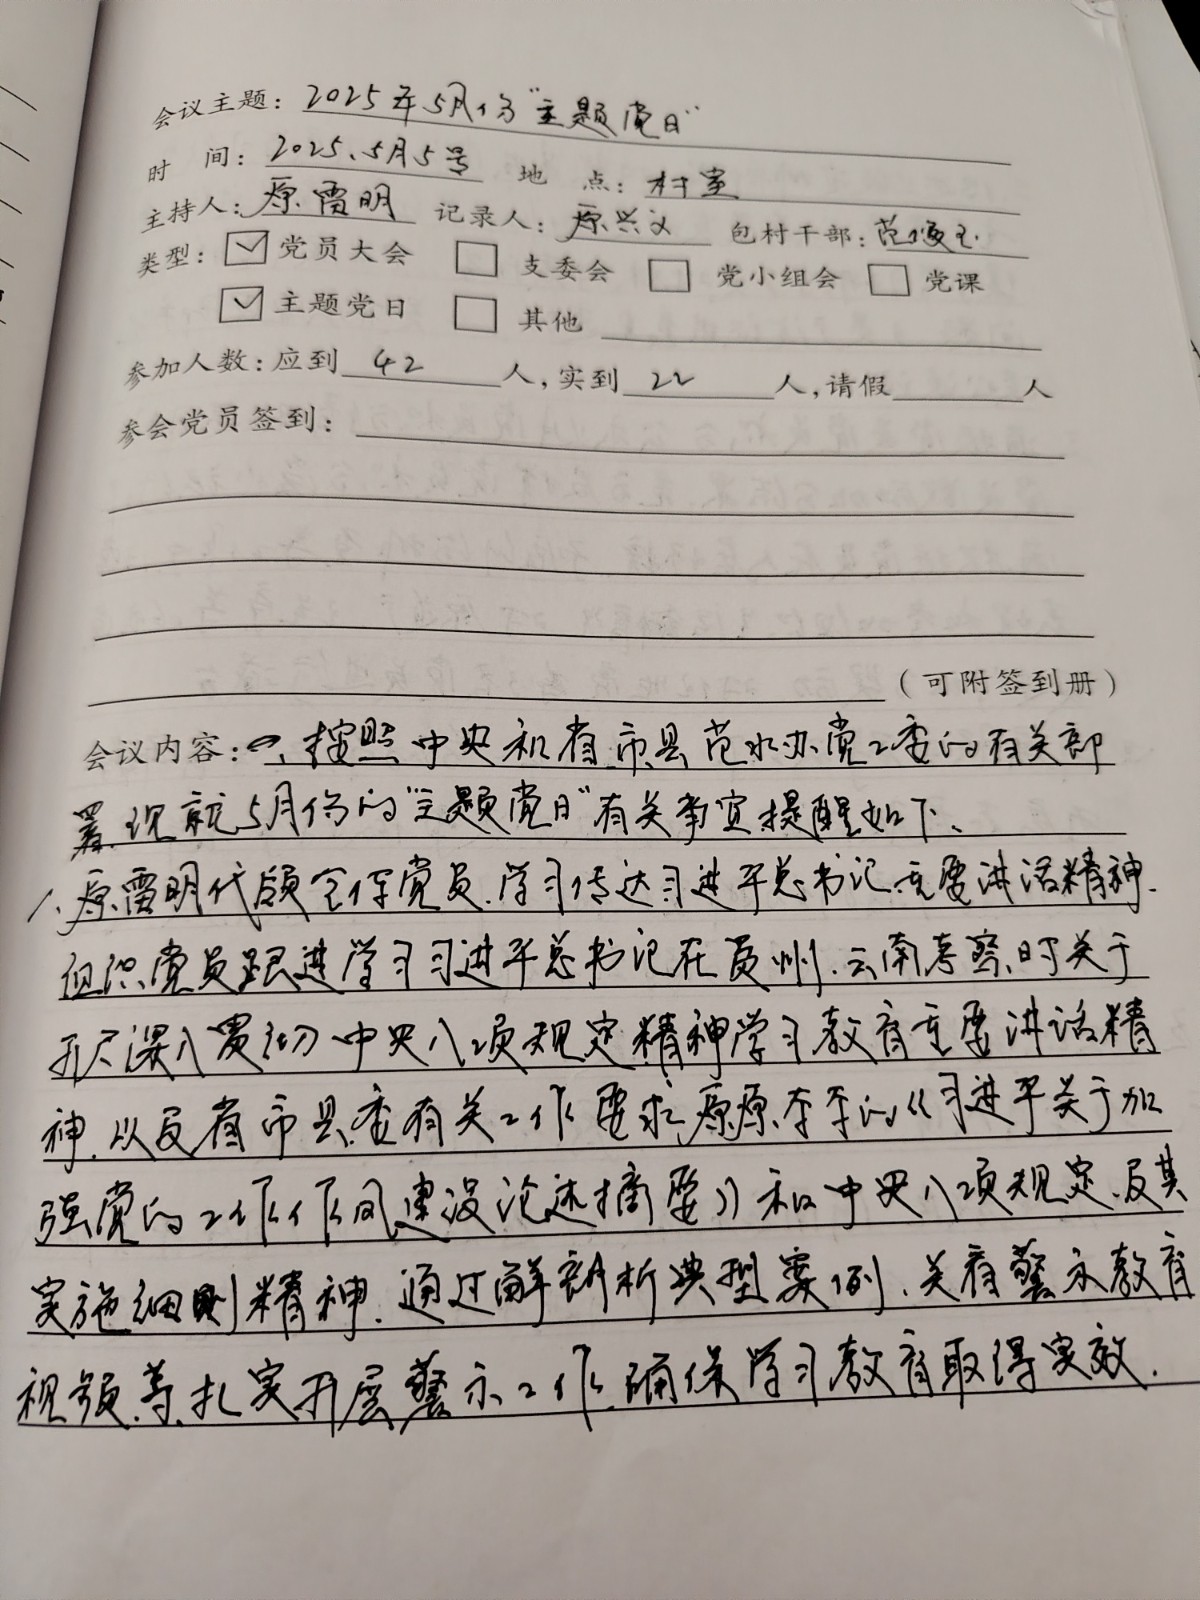 会议主题：2025年5月份“主题党日”
时 间：2025.5月5号 地 点：村室
主持人：原雷明 记录人：原兴义 包村干部：范俊玉
类型：☑党员大会 □支委会 □党小组会 □党课
☑主题党日 □其他
参加人数：应到42人，实到22人，请假 人
参会党员签到：
（可附签到册）
会议内容：一、按照中央和省市县范水办党工委的有关部
署.现就5月份的“主题党日”有关事宜提醒如下、
1、原雷明代领全体党员.学习传达习进平总书记重要讲话精神.
组织党员跟进学习习进平总书记在贵州.云南考察时关于
开展深入贯彻中央八项规定精神学习教育重要讲话精
神.以及省市县委有关工作要求,原原本本的《习进平关于加
强党的工作作风建设论述摘要》和中央八项规定及其
实施细则精神.通过解剖析典型案例.关看警示教育
视频.等.扎实开展警示工作.确保学习教育取得实效.